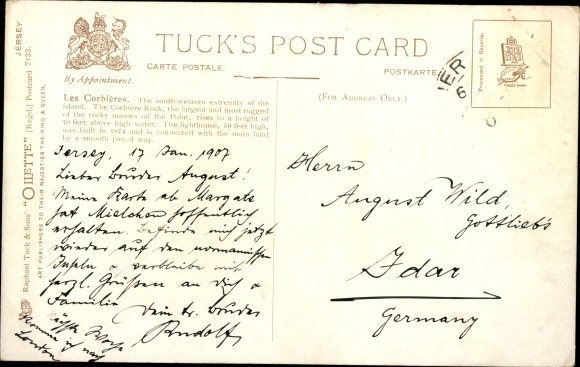 JERSEY
Raphael Tuck & Sons' "OILETTE" [Regd.] Postcard 7133.
ART PUBLISHERS TO THEIR MAJESTIES THE KING & QUEEN.
By Appointment.
TUCK'S POST CARD
CARTE POSTALE.
POSTKARTE
(FOR ADDRESS ONLY.)
Processed in Bavaria.
TRADE MARK
Les Corbières. The south-western extremity of the
island. The Corbière Rock, the largest and most rugged
of the rocky masses off the Point, rises to a height of
70 feet above high water. The lighthouse, 50 feet high,
was built in 1874 and is connected with the main land
by a smooth paved way.
Jersey, 17 Jan. 1907
Lieber Bruder August!
Meine Karte ab Margate
hat Mielchen hoffentlich
erhalten. Befinde mich jetzt
wieder auf den normannischen
Inseln & verbleibe mit
herzl. Grüßen an Dich &
Familie Dein tr. Bruder
Rudolf
nächste Woche
komme ich nach
London
Herrn
August Wild,
Gottlieb's
Idar
Germany